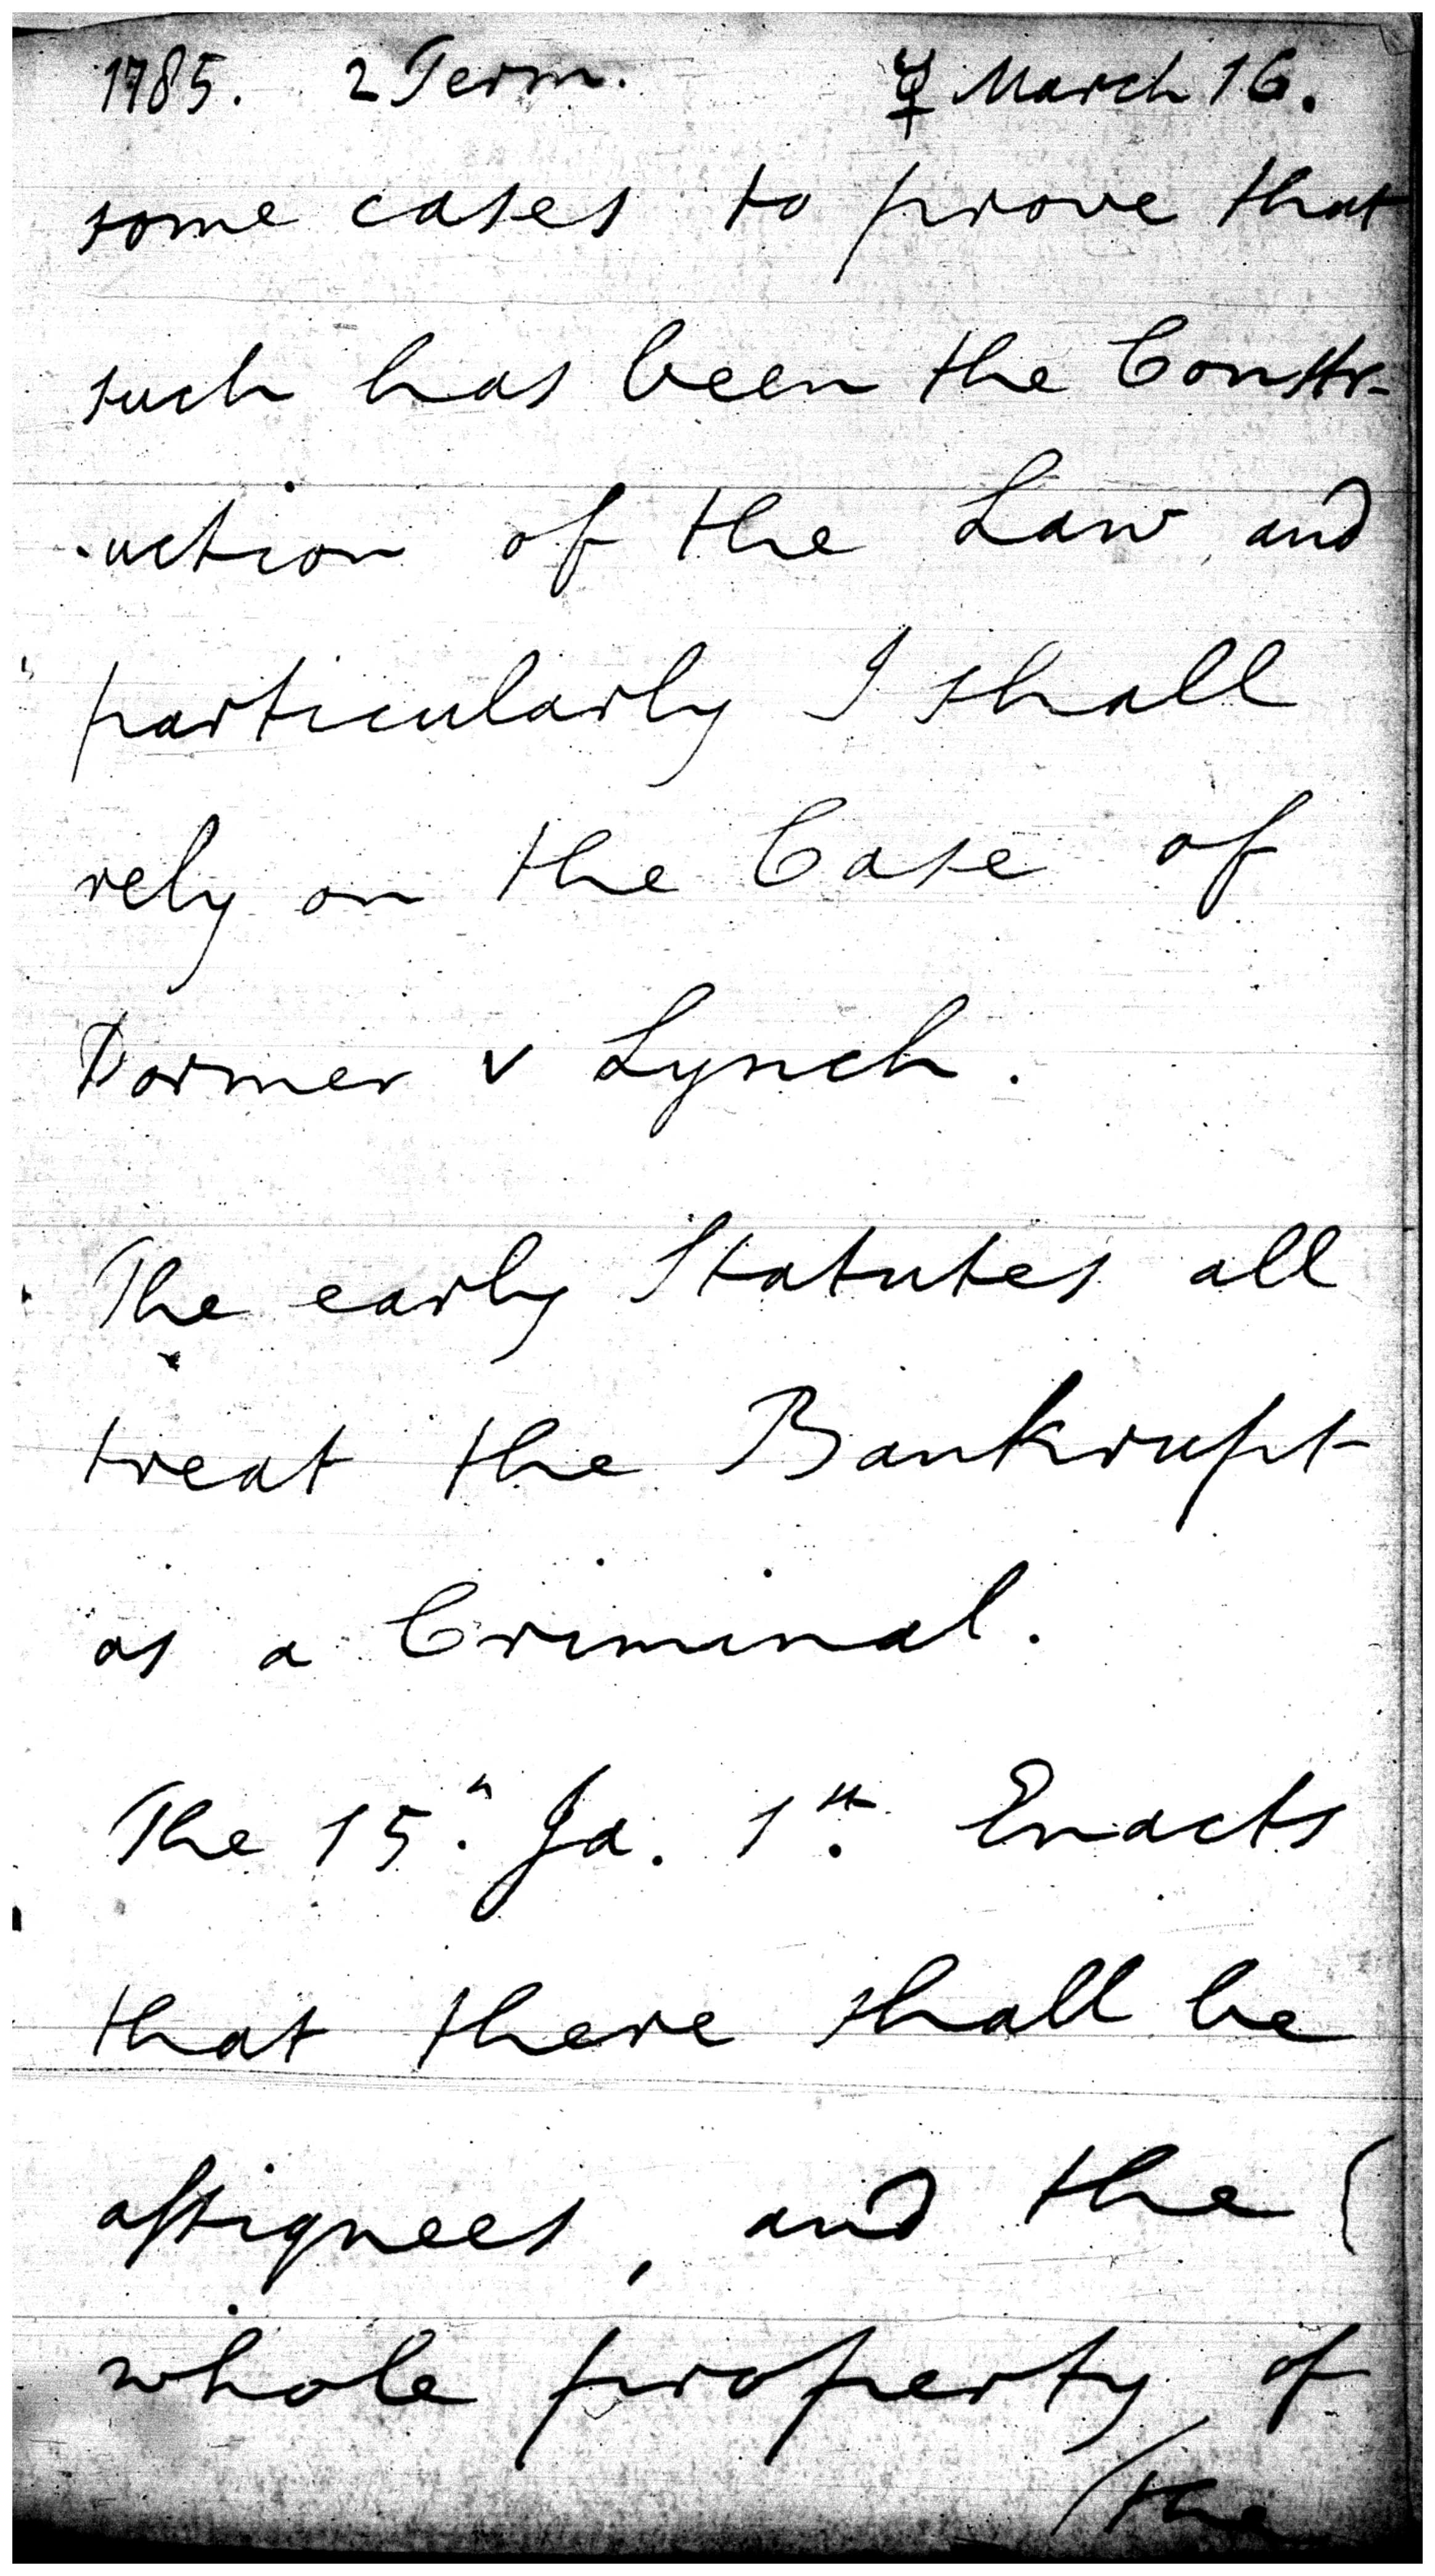 1785. 2 Term. ☿ March 16.
some cases to prove that
such has been the Constr-
-uction of the Law and
particularly I shall
rely on the Case of
Dormer v Lynch.
The early Statutes all
treat the Bankrupt
as a Criminal.
The 15.th Ja. 1st. Enacts
that there shall be
assignees, and the (
whole property of
/the